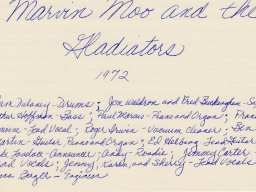 Marvin Moo and the
Gladiators
1972
Delaney - Drums; Jon Waldron and Fred Buckingham - Sa
Hoffman - Bass; Paul Marcus - Piano and Organ; Fran
- Lead Vocal; Roye Ervin - Vacuum Cleaner; Ben
- Guitar, Piano and Organ; Ed Helbing - Lead Guitar
Lovelace - Announcer; Andy - Roadie; Jimmy Carter
ad Vocals; Jenny, Karen, and Sherly - Lead Vocals
- Engineer